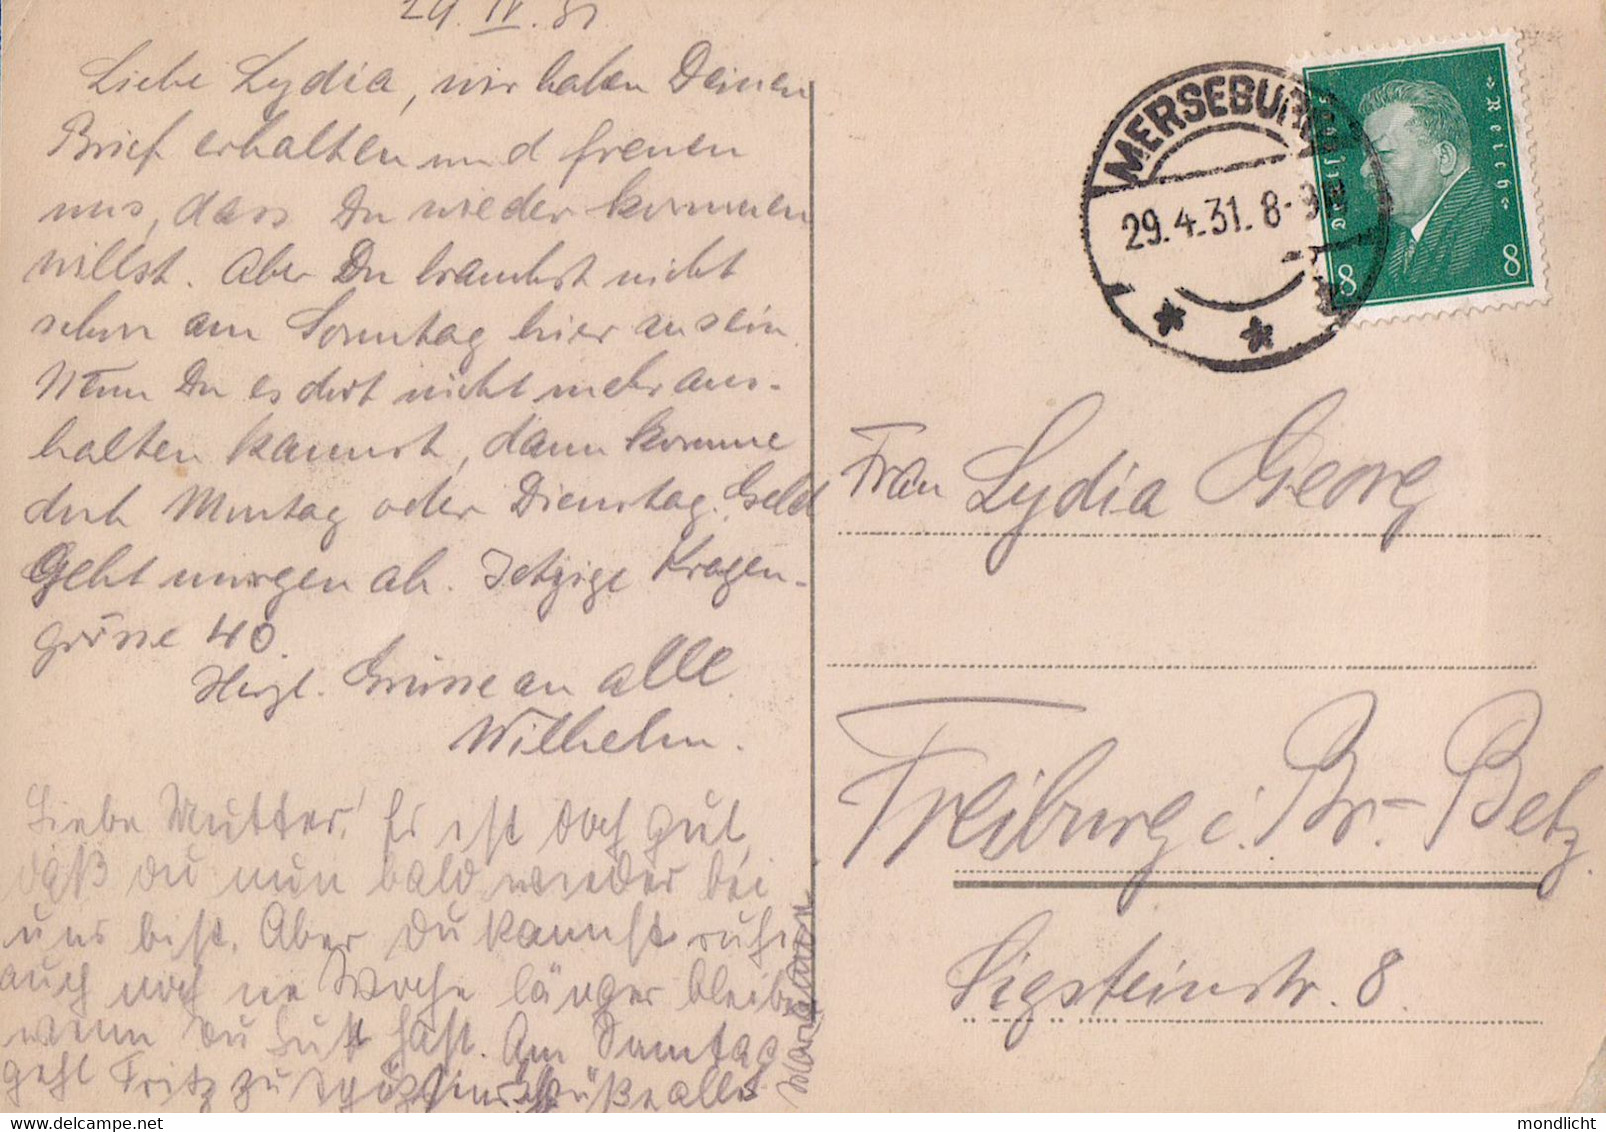 29. IV. 31
Liebe Lydia, wir haben Deinen
Brief erhalten und freuen
uns, dass Du wieder kommen
willst. Aber Du brauchst nicht
schon am Sonntag hier zu sein.
Wenn Du es dort nicht mehr aus-
halten kannst, dann komme
doch Montag oder Dienstag. Geld
geht morgen ab. Jetzige Kragen-
grösse 40.
Herzl. Grüsse an alle
Wilhelm.
Liebe Mutter! Es ist doch gut,
daß du nun bald wieder bei
uns bist. Aber du kannst ruhig
auch noch ne Woche länger bleiben
wenn du Lust hast. Am Samtag
geht Fritz zu
Marianne
MERSEBURG
29.4.31. 8-9
Deutsches Reich
8 8
Frau Lydia Georg
Freiburg i. Br.-Betz.
Sigsteinstr. 8.
mondlicht